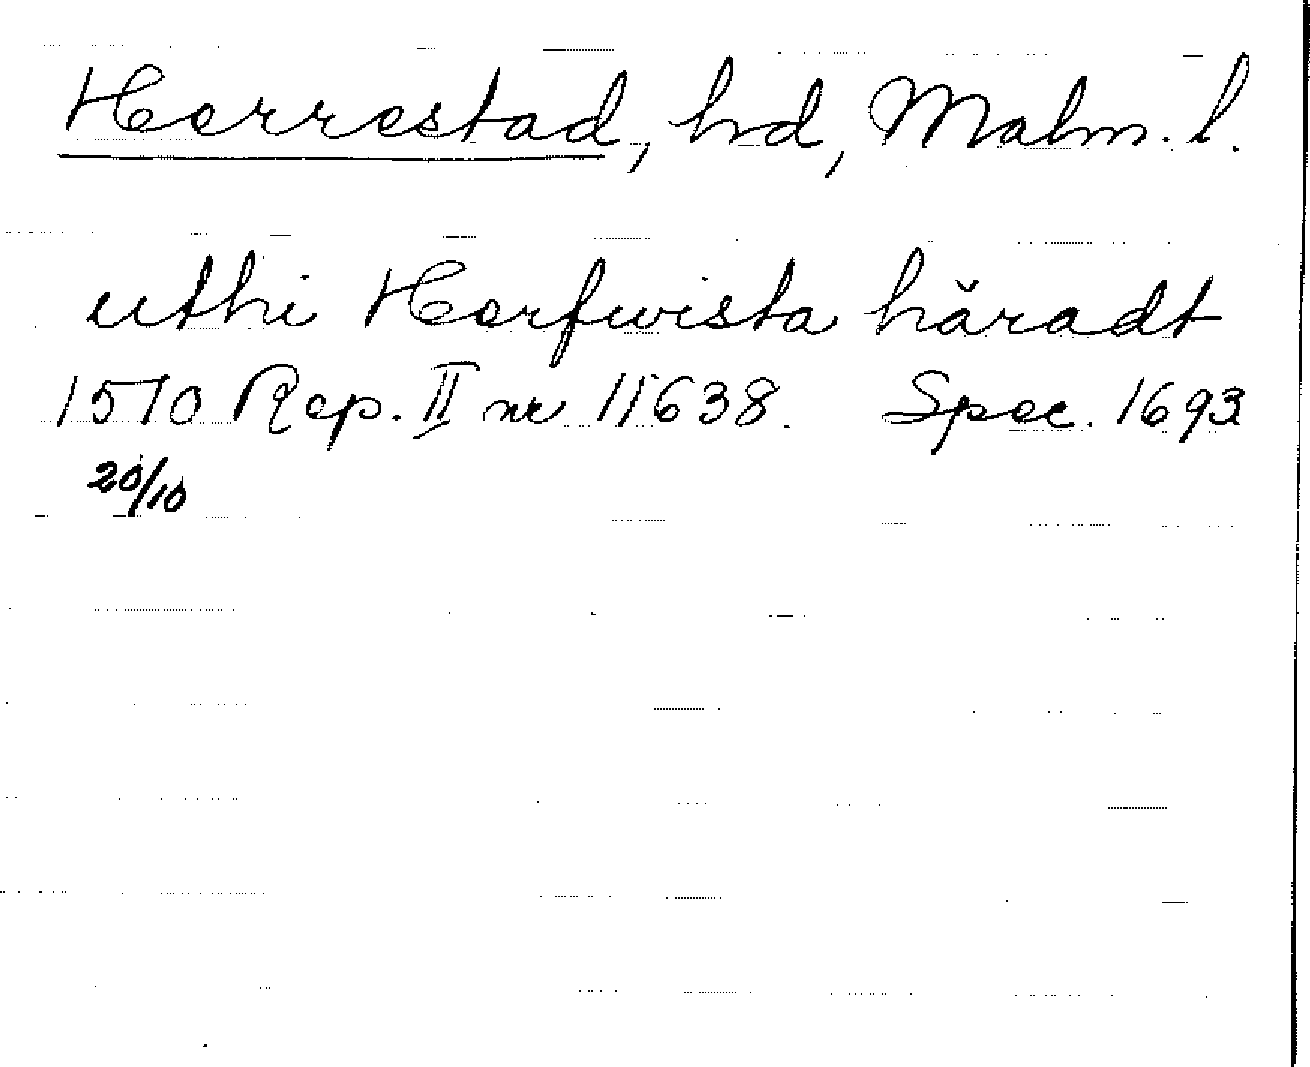 Herrestad, hd, Malm. l.
uthi Herfwista häradt
1510 Rep. II nr 11638. Spec. 1693
20/10